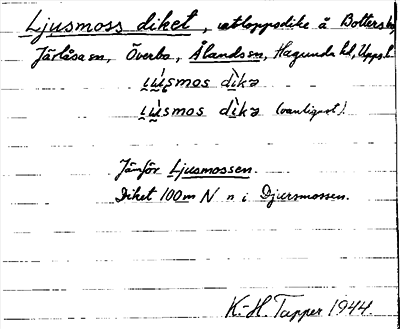 Ljusmoss diket, utloppsdike å
Järlåsa sn, Överbo, Ålands sn, Hagunda hd, Uppsl.
dìkə
dìkə (vanligast).
Jämför Ljusmossen.
Diket 100 m N n i Djursmossen.
K.-H. Tapper 1944.